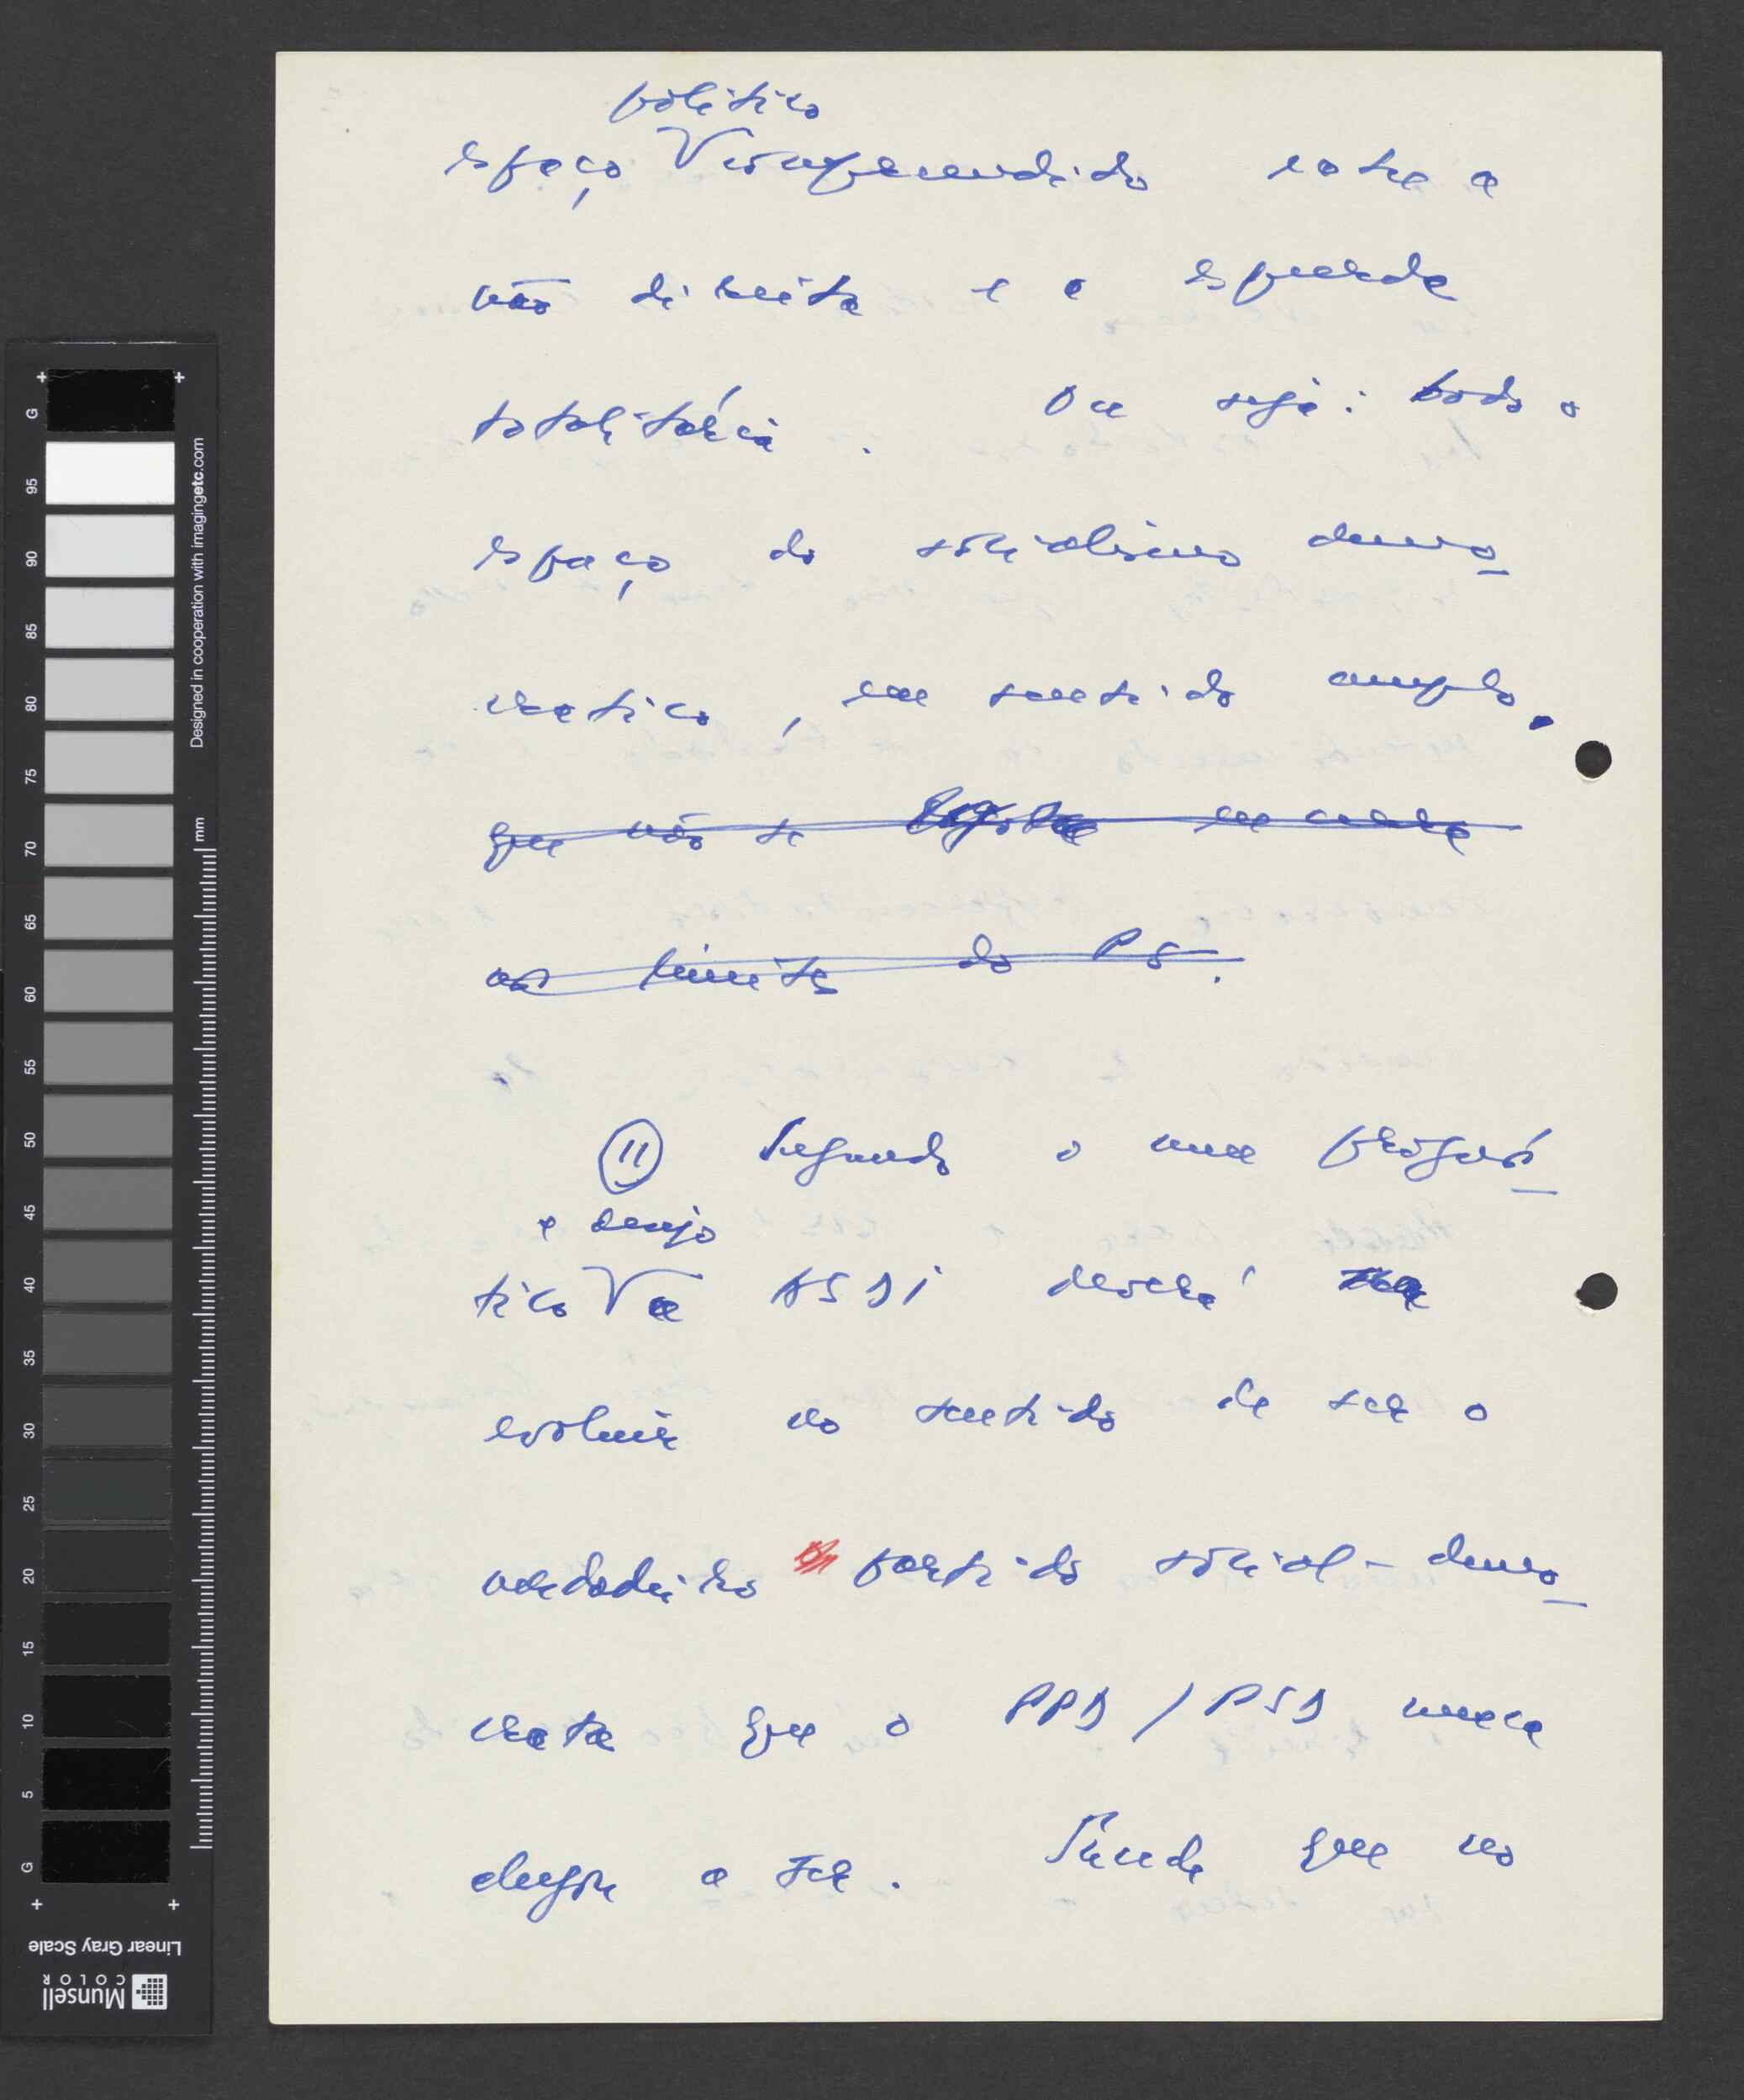 político
espaço compreendido entre a
não direita e a esquerda
totalitária. Ou seja: todo o
espaço do socialismo demo
crático, em sentido amplo.
que não se esgota em
aos limites do PS.
11 Segundo o meu prognós
e desejo
tico a ASDI deverá
evoluir no sentido de ser o
verdadeiro partido social-demo
crata que o PPD/PSD nunca
chegou a ser. Sendo que no
G 95 90 85 80 75 70 65 60 55 50 45 40 35 30 25 20 15 10 5 G
Designed in cooperation with imagingetc.com
mm
Linear Gray Scale
Munsell
COLOR